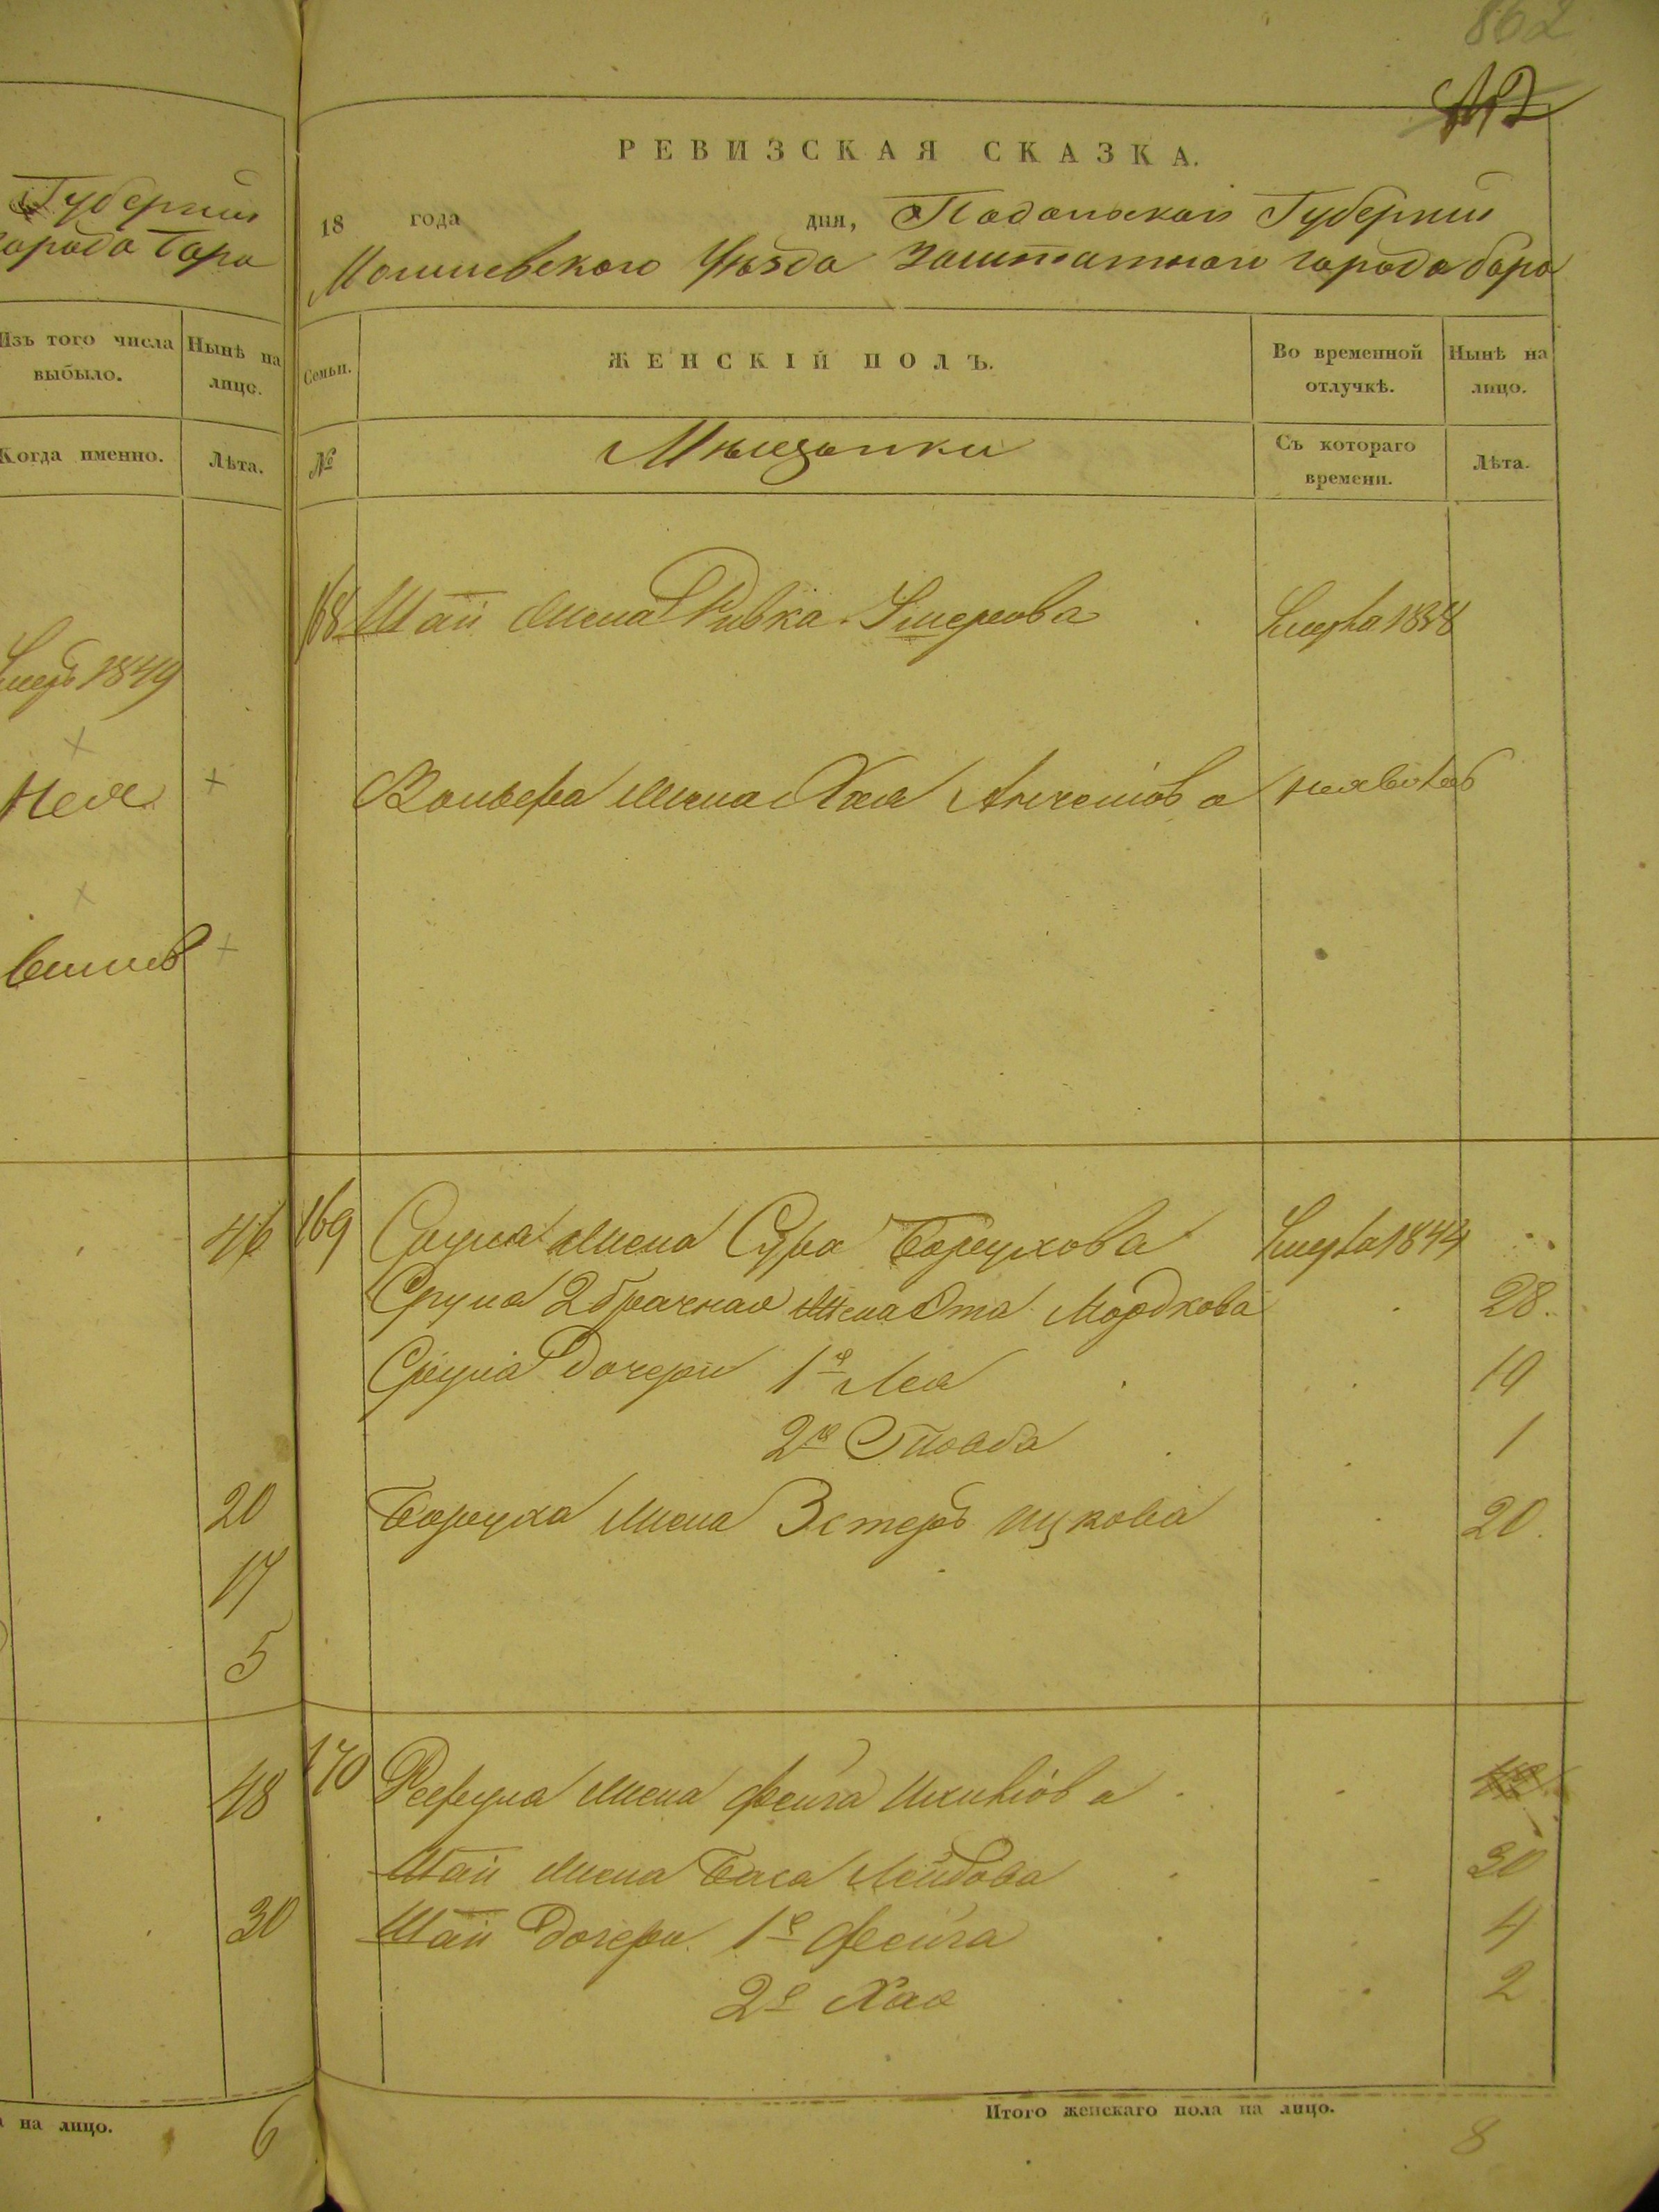 862
Губернии
города Бара
Изъ того числа выбыло.
Нынѣ на лицо.
Когда именно.
Лѣта.
1849
Нея
46
20
17
5
48
30
на лицо.
6
РЕВИЗСКАЯ СКАЗКА.
18 года дня, Подольской Губернии
Могилевского Уѣзда Заштатного города бара
Семьи.
ЖЕНСКІЙ ПОЛЪ.
Во временной отлучкѣ.
Нынѣ на лицо.
№
Мѣщанки
Съ котораго времени.
Лѣта.
168 Шаи Жена Ривка Умерла 1838
Вольфа Жена Хая неявилась
169 Сруля Жена Сура Борухова Умерла 1844
Сруля 2 брачная Жена Эта Мордкова 28.
Сруля дочери 1я Лея 19
2я 1
Боруха жена Эстеръ Ицкова 20.
170 жена Фейга
Шаи жена Бася Лейбова 30
Шаи дочери 1я Фейга 4
2я Хая 2
Итого женскаго пола на лицо.
8